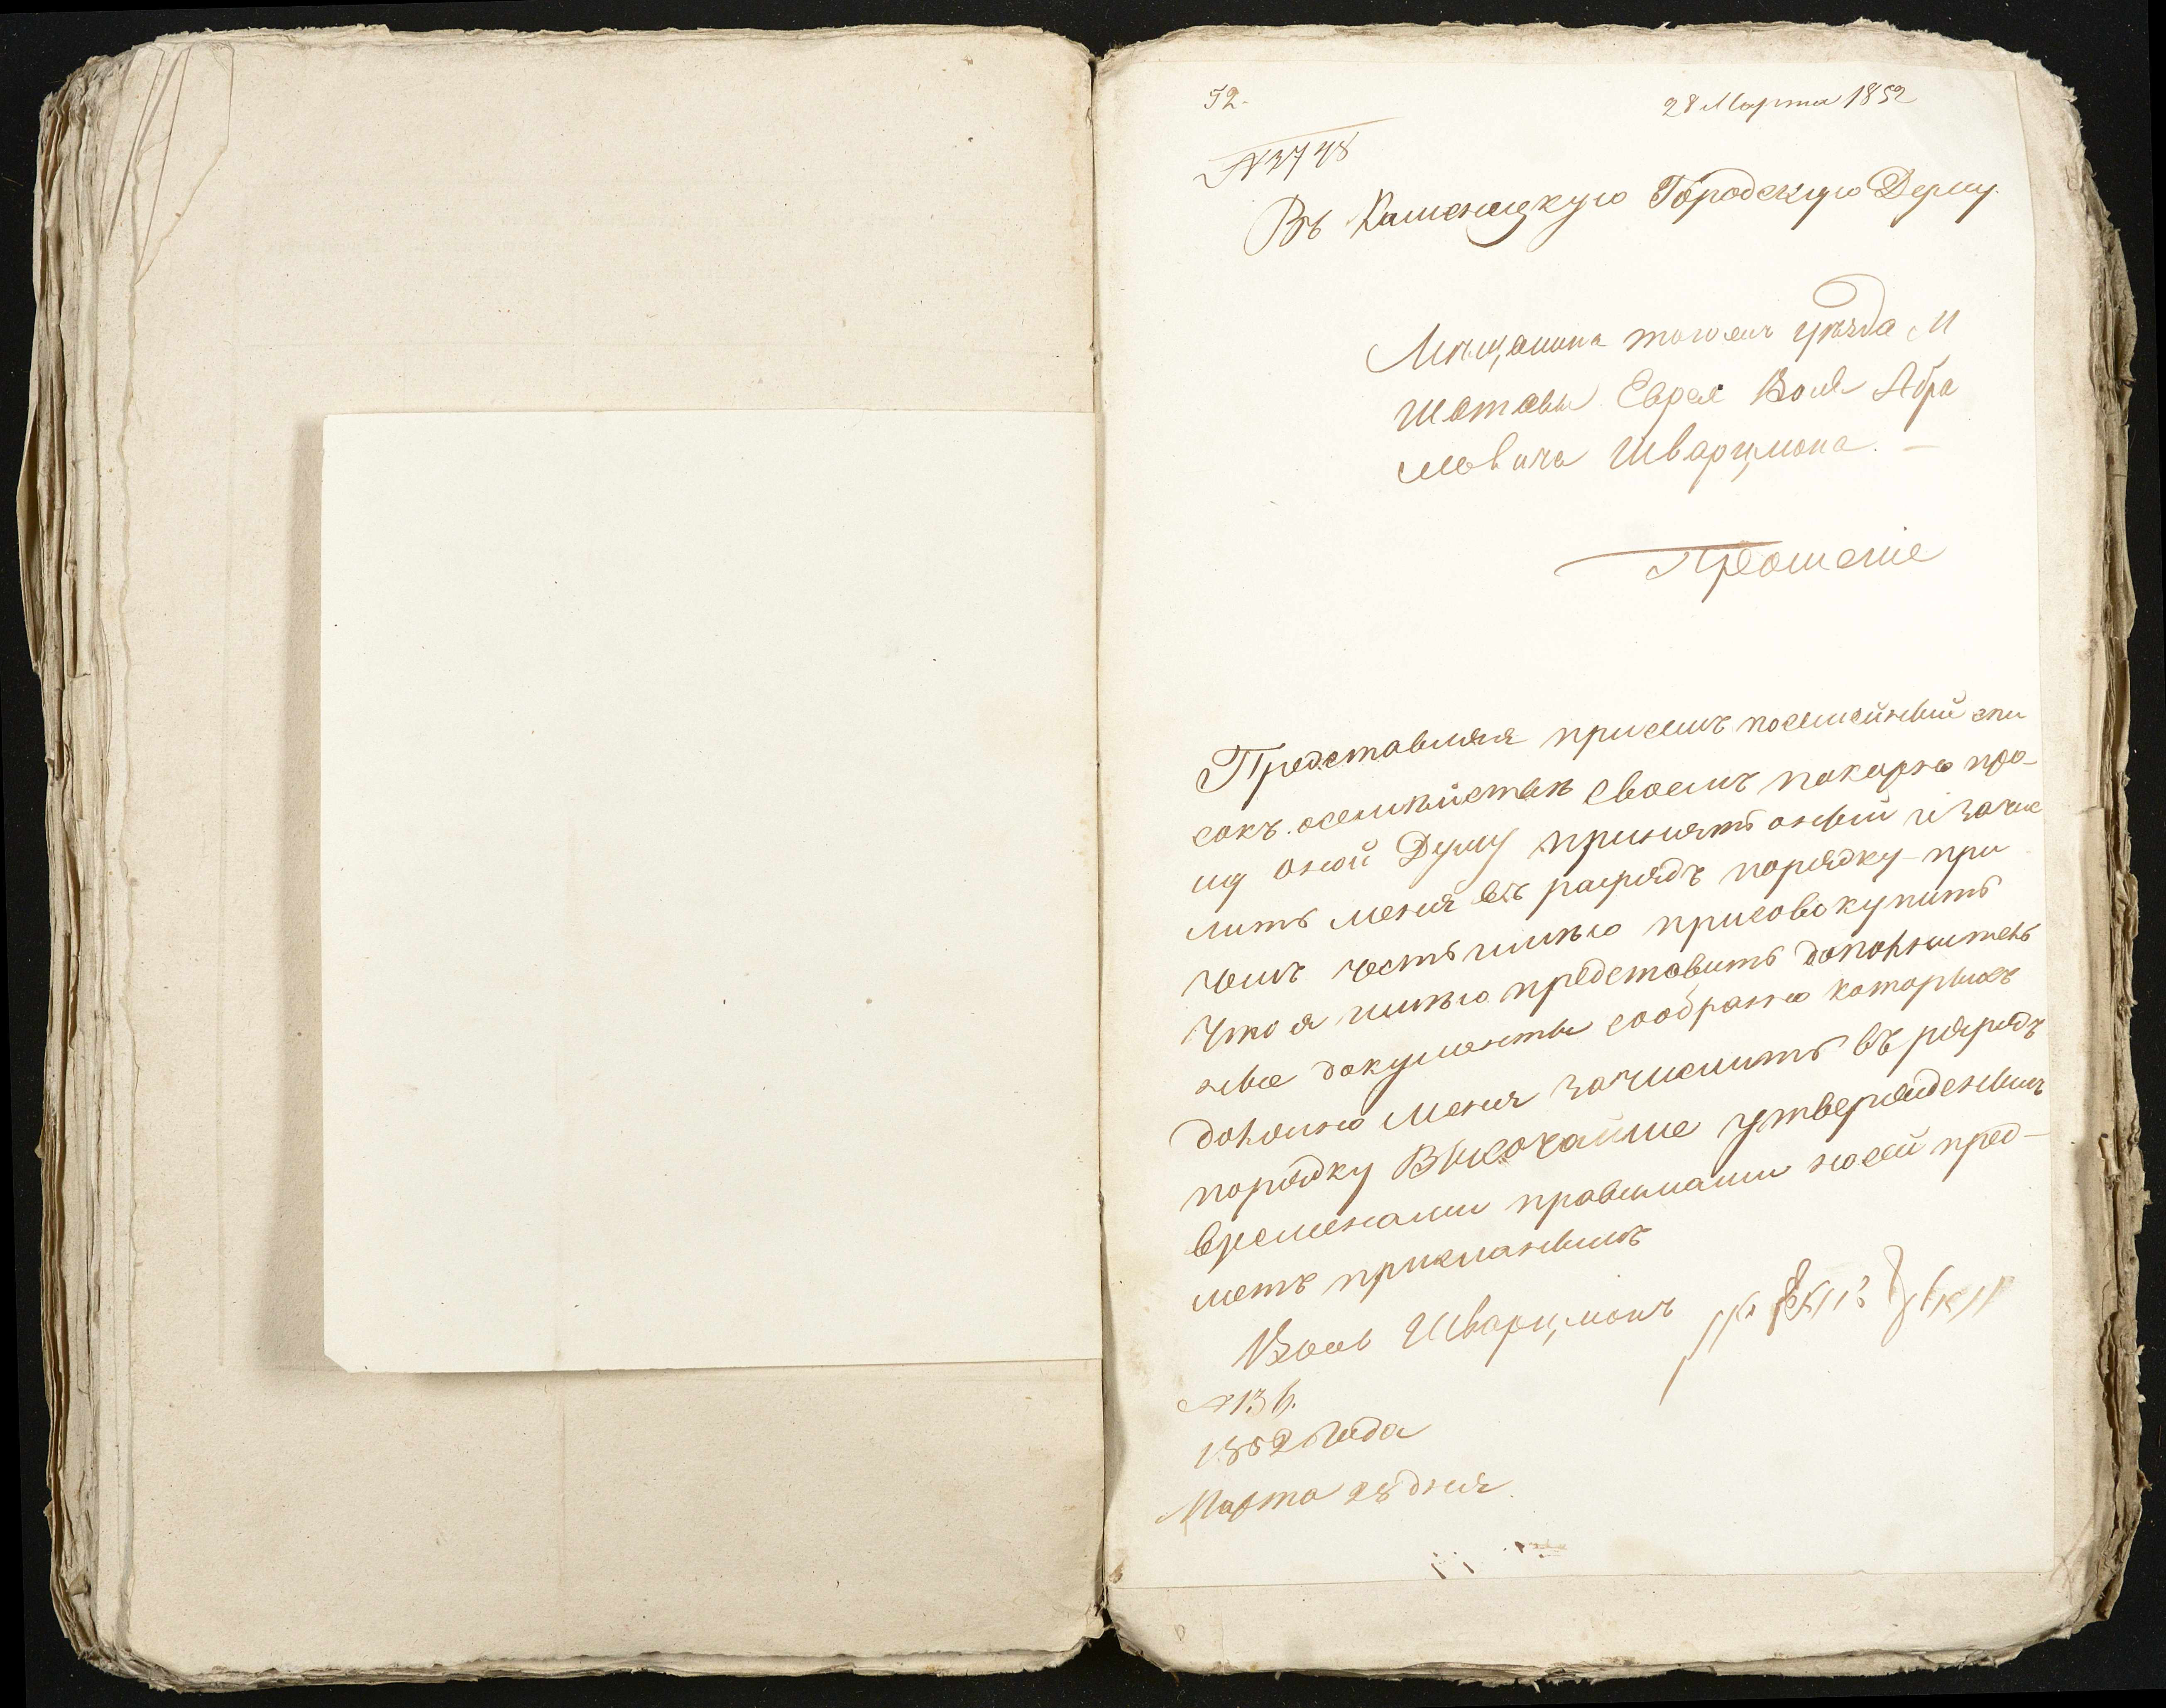 52.
28 Марта 1852
№ 3748
Въ Каменецкую Городскую Думу.
Мѣщанина тогожъ уѣзда М
Шатавы Еврея Воля Абра
мовича Шварцмана. —
Прошение
Представляя присемъ посемейный спи
сокъ осемѣйствѣ своемъ покорно про-
шу оной Думу принять оный и зачис
лить меня въ разрядъ порядку при
чемъ честь имѣю присовокупить
Что я имѣю представить дополнитель
ные документы сообразно которыхъ
должно меня зачислить въ разрядъ
порядку Высочайше утвержденнымъ
временами правилами насей пред-
метъ присланнымъ
Воль Шварцманъ
№ 136.
1852 Года
Марта 28 дня.